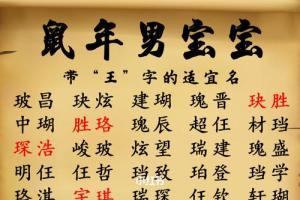 鼠年男宝宝
带“王”字的适宜名
玻昌 玦炫 建瑚 瑰晋 玦胜
中瑚 胜珞 瑰辰 超仼 材珰
琛浩 峻玻 炫望 瑞建 瑰盛
明仼 仼哲 珰琅 珀登 珰学
珞淇 宝琪 瑞琛 仼钦 轩瑚